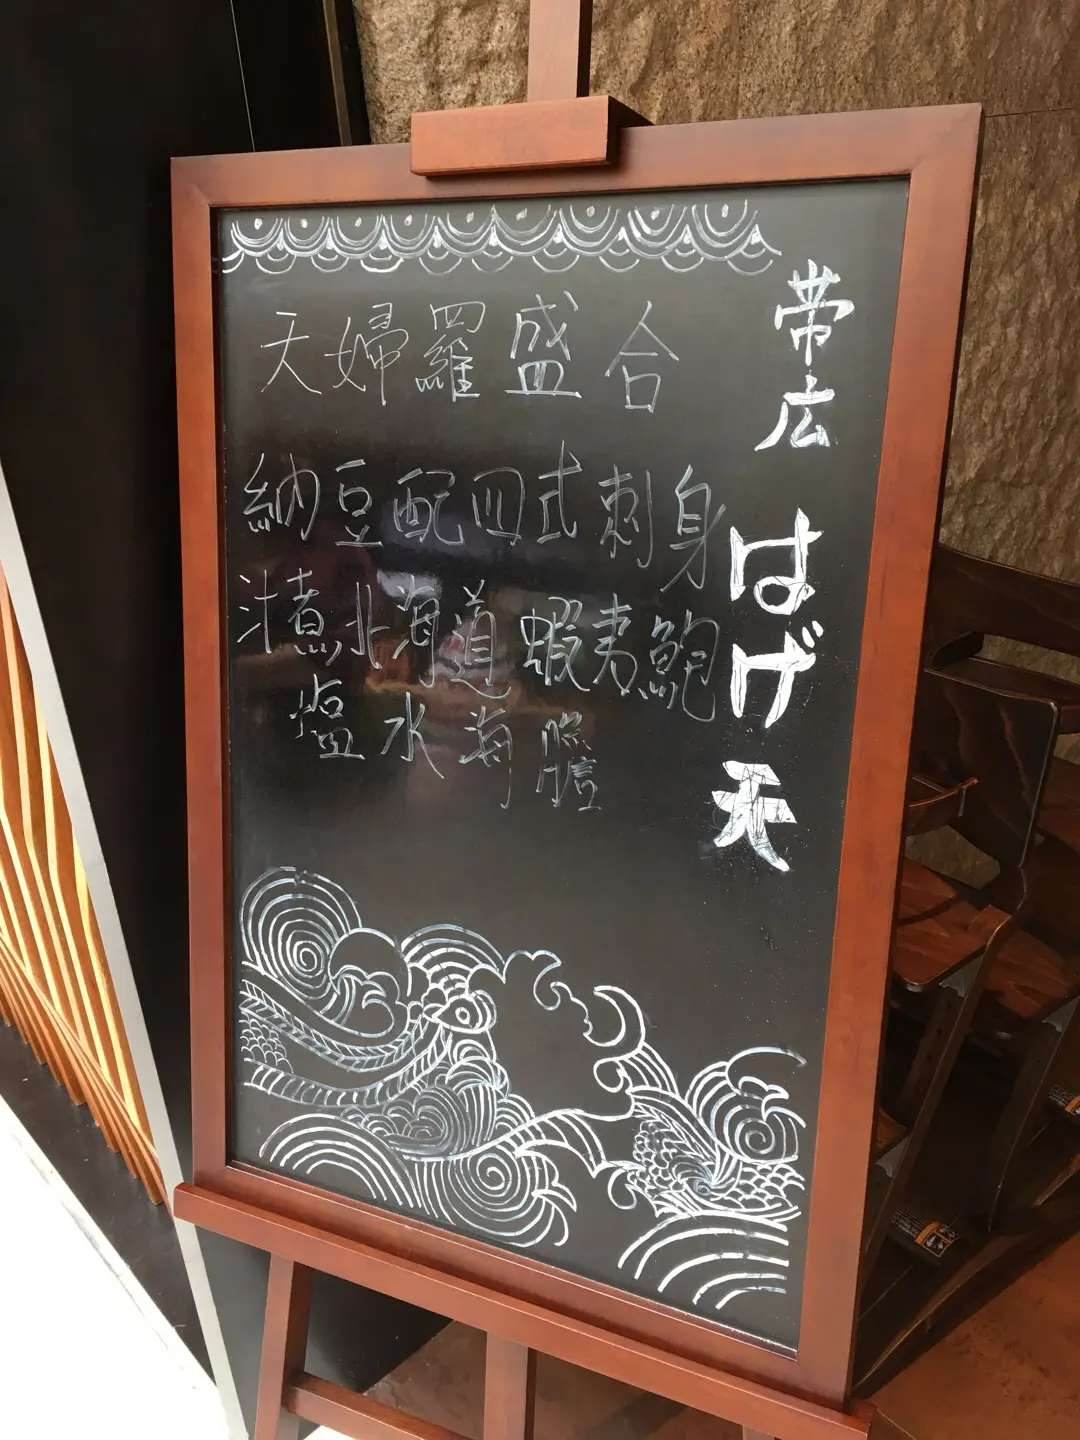 帯広 はげ天
天婦羅盛合
納豆配四式刺身
汁煮北海道蝦夷鮑
塩水海膽